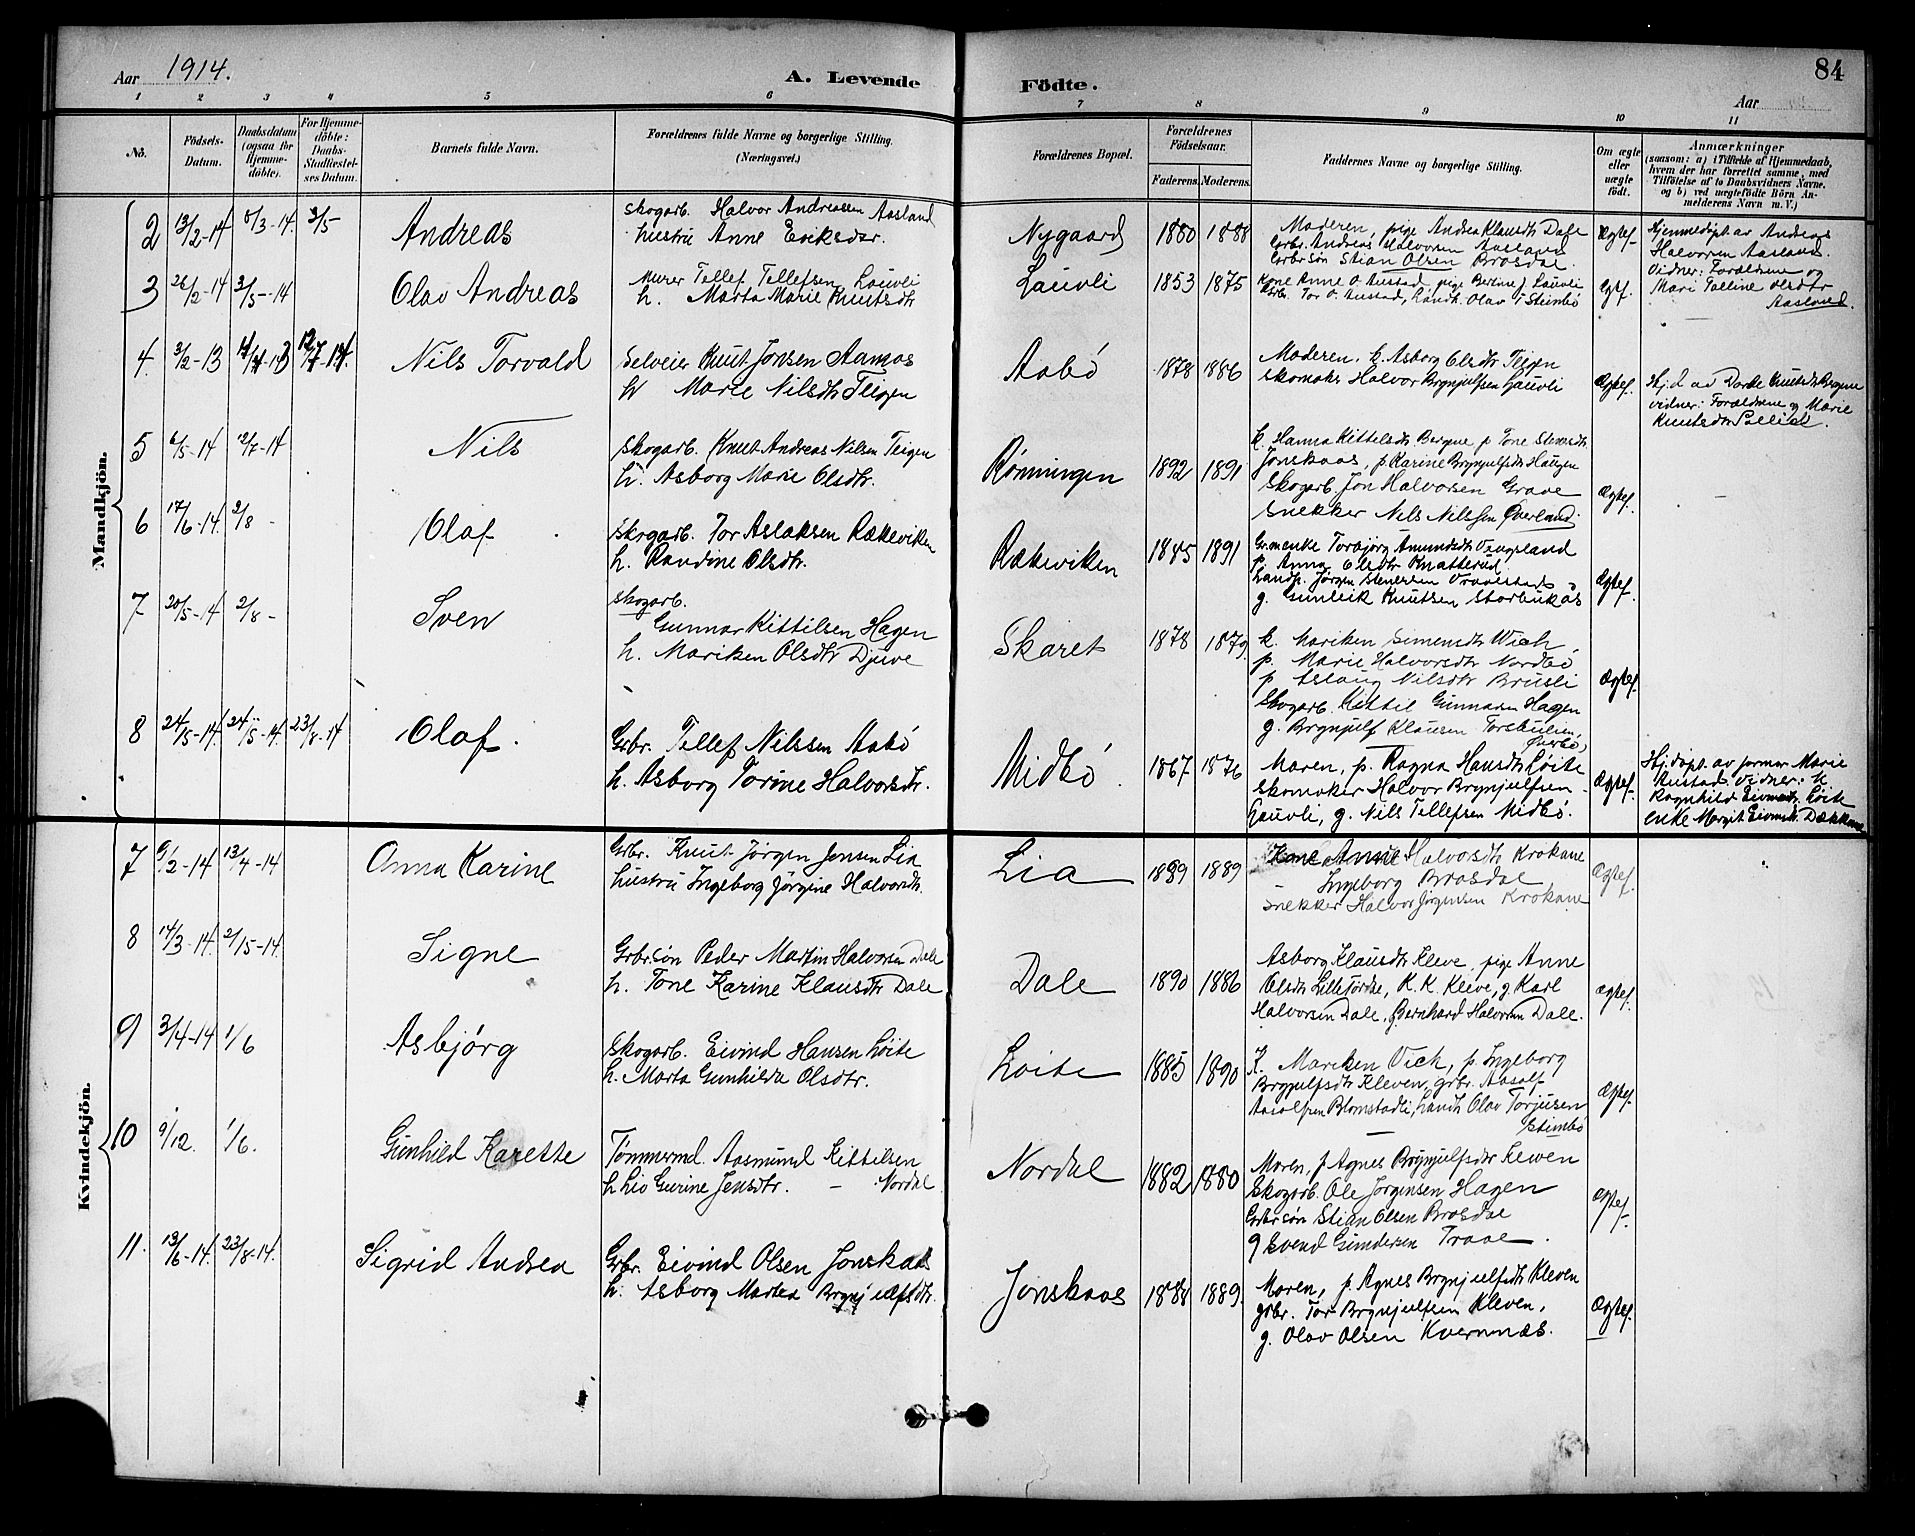 Aar 1914.
A. Levende
Födte.
84
Aar
1 2 3 4 5 6 7 8 9 10 11
No.
Födsels-
Datum.
Daabsdatum
(ogsaa for
Hjemme-
döbte).
For Hjemme-
döbte:
Daabs-
Stadfæstel-
ses Datum.
Barnets fulde Navn.
Forældrenes fulde Navne og borgerlige Stilling.
(Næringsvei.)
Forældrenes Bopæl.
Forældrenes
Födselsaar.
Faderens.
Moderens.
Faddernes Navne og borgerlige Stilling.
Om ægte
eller
uægte
födt.
Anmærkninger
(saasom: a) i Tilfælde af Hjemmedaab,
hvem der har forrettet samme, med
Tilföielse af to Daabsvidners Navne,
og b) ved uægtefödte Börn An-
melderens Navn m. V.)
Mandkjön.
2 13/2-14 8/3-14. 3/5
Andreas
Skogarb. Halvor Andreassen Aasland
hustru Anne Eriksdtr.
Nygaard 1880 1888
Moderen, pige Andrea Klausdtr Dale
Grbr. Andreas Halvorsen Aasland
Grbr søn Stian Olsen Brosdal.
Ægtef.
Hjemmedøpt av Andreas
Halvorsen Aasland.
Vidner: Forældrene og
Mari Talline Olsdtr
Aasland.
3 26/2-14 3/5-14
Olav Andreas
Murer Tellef Tellefsen Lauvli
h. Marta Marie Knutsdtr
Lauvli 1853 1875
Kone Anne O. Austad, pige Bertine J Lauvli
Grbr. Tor O. Austad, Landh. Olav T Steinbö
Egtf.
4. 3/2-13
Nils Torvald
Selveier Knut Jonsen Aamos
h Marie Nilsdtr Teigen
Aabö 1878 1886
Moderen, k. Asborg Olsdtr Teigen
Skomaker Halvor Brynjulfsen Lauvli
Ægtef.
Hj.d. av Dorte Knutsdtr Bergene
vidner: Forældrene og Marie
Knutsdtr
5 6/5-14 12/7-14
Nils
Skogarb. Knut Andreas Nilsen Teigen
h. Asborg Marie Olsdtr.
Rønningen 1892 1891
k. Hanna Kittelsdtr Bergene p Tone Stensdtr
Jonskaas, p. Karine Brynjulfsdtr Haugen
Skogarb. Jon Halvorsen Grave
Snekker Nils Nilssen Øverland.
Ægtef.
6 17/6-14. 2/8 -
Olaf
Skogarb. Tor Aslaksen Rækeviken
h. Randine Olsdtr.
Rækeviken 1885 1891
Gr.m.enke Torbjørg Amundsdtr Vingsland
p. Anna Olsdtr Knatterud
Landh. Jörgen Stenersen
g. Gunleik Knutsen Storbukås
Ægtef.
7 20/5-14 2/8 -
Sven
Skogarb.
Gunnar Kittilsen Hagen
h. Mariken Olsdtr Djuve
Skaret 1878 1879.
k. Mariken Simensdtr Wich,
p. Marie Halvorsdtr Nordbö
p Aslaug Nilsdtr Brusli
Skogarb. Kittil Gunnarsen Hagen
g. Brynjulf Klausen
Ægtef.
8 24/5-14. 24/5-14. 23/8-14
Olaf.
Grbr. Tellef Nilssen Aabö
h. Asborg Torine Halvorsdtr.
Midbö. 1867 1876
Moren, p. Ragna Hansdtr Löite
Skomaker Halvor Brynjulfsen
Lauvli, g. Nils Tellefsen Midbö.
Ægtef.
Hj.döpt. av jormor Marie
Austad. Vidner: k
Ragnhild Eivindsdtr. Löite
enke Margit Eivindsdtr. Dækkane
Kvindekjön.
7 9/2-14 13/4-14
Anna Karine
Grbr. Knut Jörgen Jonsen Lia
hustru Ingeborg Jörgine Halvorsdtr.
Lia 1889 1889
Kone Anne Halvorsdtr Krokane
- Ingeborg Brosdal
Snekker Halvor Jörgensen Krokane
Ægtef.
8 14/3-14. 21/5-14.
Signe
Grbr.søn Peder Martin Halvorsen Dale
h. Tone Karine Klausdtr Dale
Dale 1890 1886
Asborg Klausdtr Kleve, pige Anne
Olsdtr Lilletördal, K. K. Kleive, g Karl
Halvorsen Dale, Bernhard Halvorsen Dale.
Ægtef.
9 3/4-14 1/6
Asbjørg
Skogarb. Eivind Hansen Löite
h. Marta Gunhilda Olsdtr.
Löite 1885 1890
K. Mariken Vich, p. Ingeborg
Brynjulfsdtr Kleven, grbr. Aasolf
Aasolfsen Blomstadli, Landh. Olav Torjusen
Steinbö
Ægtef.
10 9/12. 1/6.
Gunhild Karette
Tømmermd. Aasmund Kittilsen
h Liv Gurine Jensdtr. - Nordal
Nordal 1882 1880
Moren, p Agnes Brynjulfsdtr Kleven
Skogarb. Ole Jörgensen Hagen
Grbr søn Stian Olsen Brosdal
g Svend Gundersen Traae.
Ægtef.
11. 13/6-14. 23/8-14.
Sigrid Andrea
Grbr. Eivind Olsen Jonskaas
h. Asborg Martea Brynjulfsdtr.
Jonskaas 1888 1889.
Moren, p. Agnes Brynjulfsdtr Kleven
grbr. Tor Brynjulfsen Kleven,
g. Olav Olsen Kvernnæs.
Ægtef.